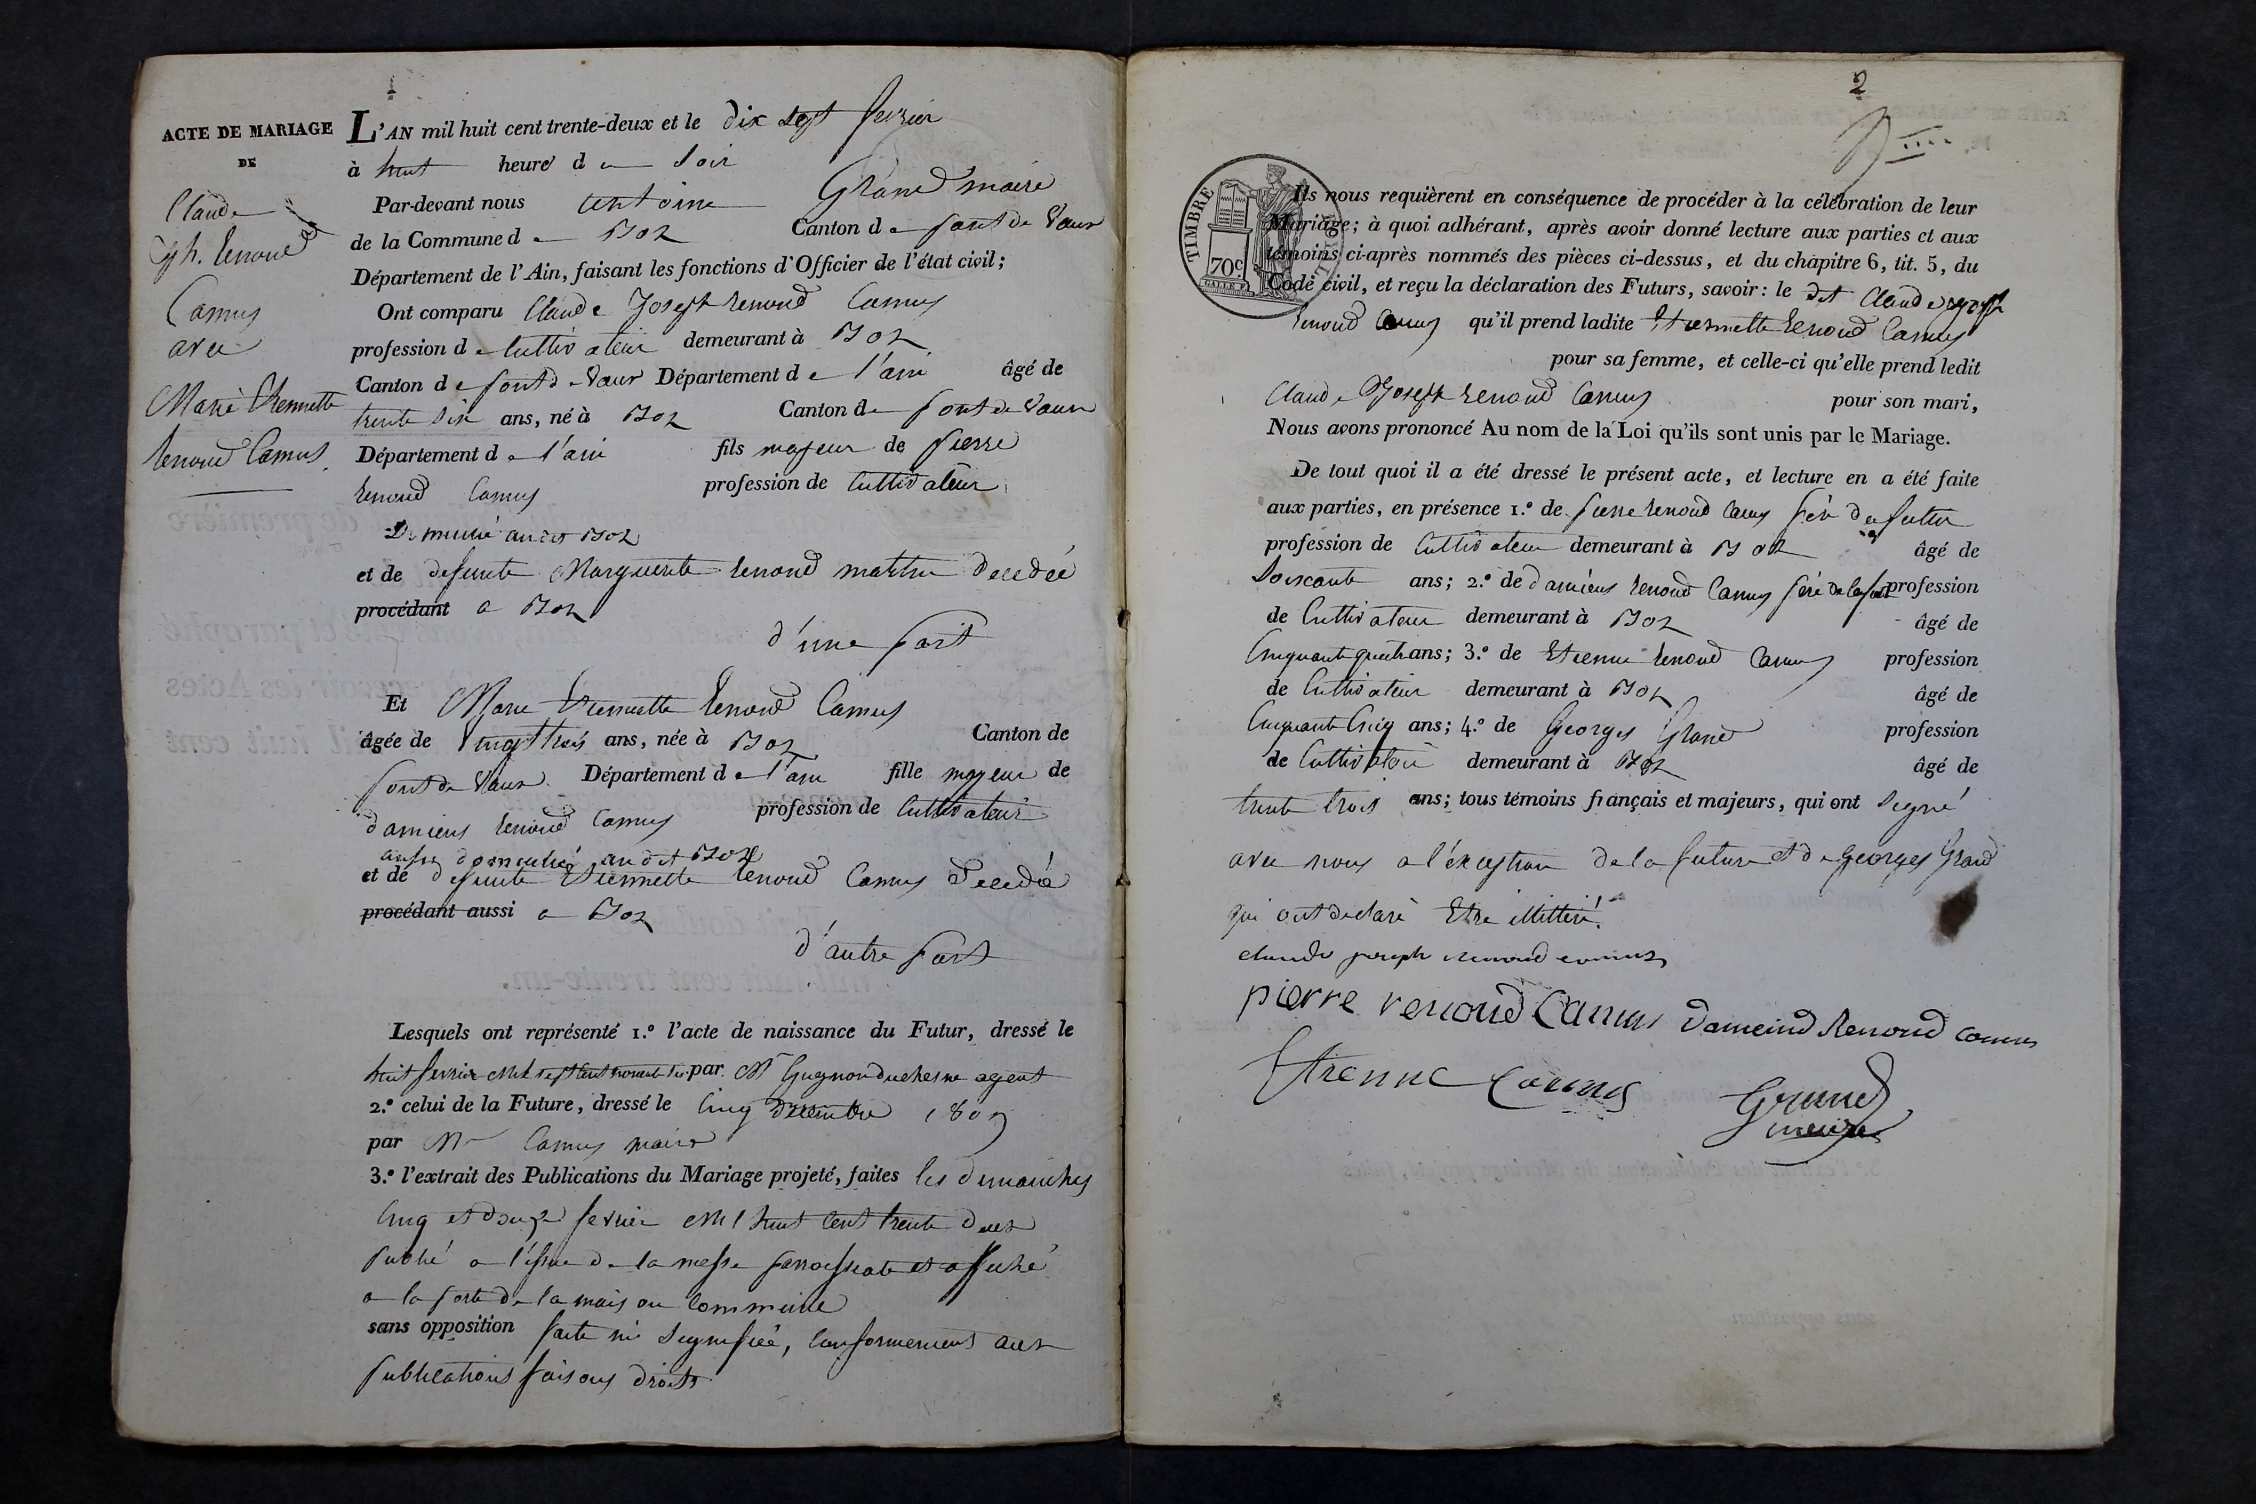 1
ACTE DE MARIAGE
DE
Claude
Jph. Renoud
Camus
avec
Marie Etiennette
Renoud Camus
L'AN mil huit cent trente-deux et le dix sept fevrier
à huit heure du soir
Par-devant nous antoine Grand maire
de la Commune de Boz Canton de pont de Vaux
Département de l'Ain, faisant les fonctions d'Officier de l'état civil;
Ont comparu Claude Joseph Renoud Camus
profession de Cultivateur demeurant à Boz
Canton de pont de Vaux Département de l'ain âgé de
trente six ans, né à Boz Canton de pont de Vaux
Département de l'ain fils majeur de pierre
Renoud Camus profession de Cultivateur
au dit Boz
et de defunte Marguerite Renoud decedée
procédant a Boz
d'une part
Et Marie Etiennette Renoud Camus
âgée de Vingt trois ans, née à Boz Canton de
pont de Vaux Département de l'ain fille majeur de
damiens Renoud Camus profession de Cultivateur
aussi domicilié au dit Boz
et de defunte Etiennette Renoud Camus Decedée
procédant aussi a Boz
d'autre part
Lesquels ont représenté 1.º l'acte de naissance du Futur, dressé le
huit fevrier mil sept cent par Mr agent
2.º celui de la Future, dressé le Cinq Decembre
par Mr Camus maire
3.º l'extrait des Publications du Mariage projeté, faites les dimanches
Cinq et douze fevrier mil huit Cent trente deux
publié a l'issue de la messe paroissiale et affiché
a la porte de la maison Commune
sans opposition faite ni signifiée, Conformement aux
publications faisons droits
2
TIMBRE ROYAL
70c
Ils nous requièrent en conséquence de procéder à la célébration de leur
Mariage; à quoi adhérant, après avoir donné lecture aux parties et aux
témoins ci-après nommés des pièces ci-dessus, et du chapitre 6, tit. 5, du
Code civil, et reçu la déclaration des Futurs, savoir: le dit Claude joseph
Renoud Camus qu'il prend ladite Etiennette Renoud Camus
pour sa femme, et celle-ci qu'elle prend ledit
Claude Joseph Renoud Camus pour son mari,
Nous avons prononcé Au nom de la Loi qu'ils sont unis par le Mariage.
De tout quoi il a été dressé le présent acte, et lecture en a été faite
aux parties, en présence 1.º de pierre Renoud Camus père du futur
profession de Cultivateur demeurant à Boz âgé de
Soixante ans; 2.º de damiens Renoud Camus père de la profession
de Cultivateur demeurant à Boz âgé de
Cinquante quatre ans; 3.º de Etienne Renoud Camus profession
de Cultivateur demeurant à Boz âgé de
Cinquante Cinq ans; 4.º de Georges Grand profession
de Cultivateur demeurant à Boz âgé de
trente trois ans; tous témoins français et majeurs, qui ont signé
avec nous a l'exception de la future et de Georges Grand
qui ont declaré Etre illitteré.
claude joseph renoud camus
pierre renoud Camus Dameind Renoud camus
Etienne Camus
Grand
maire